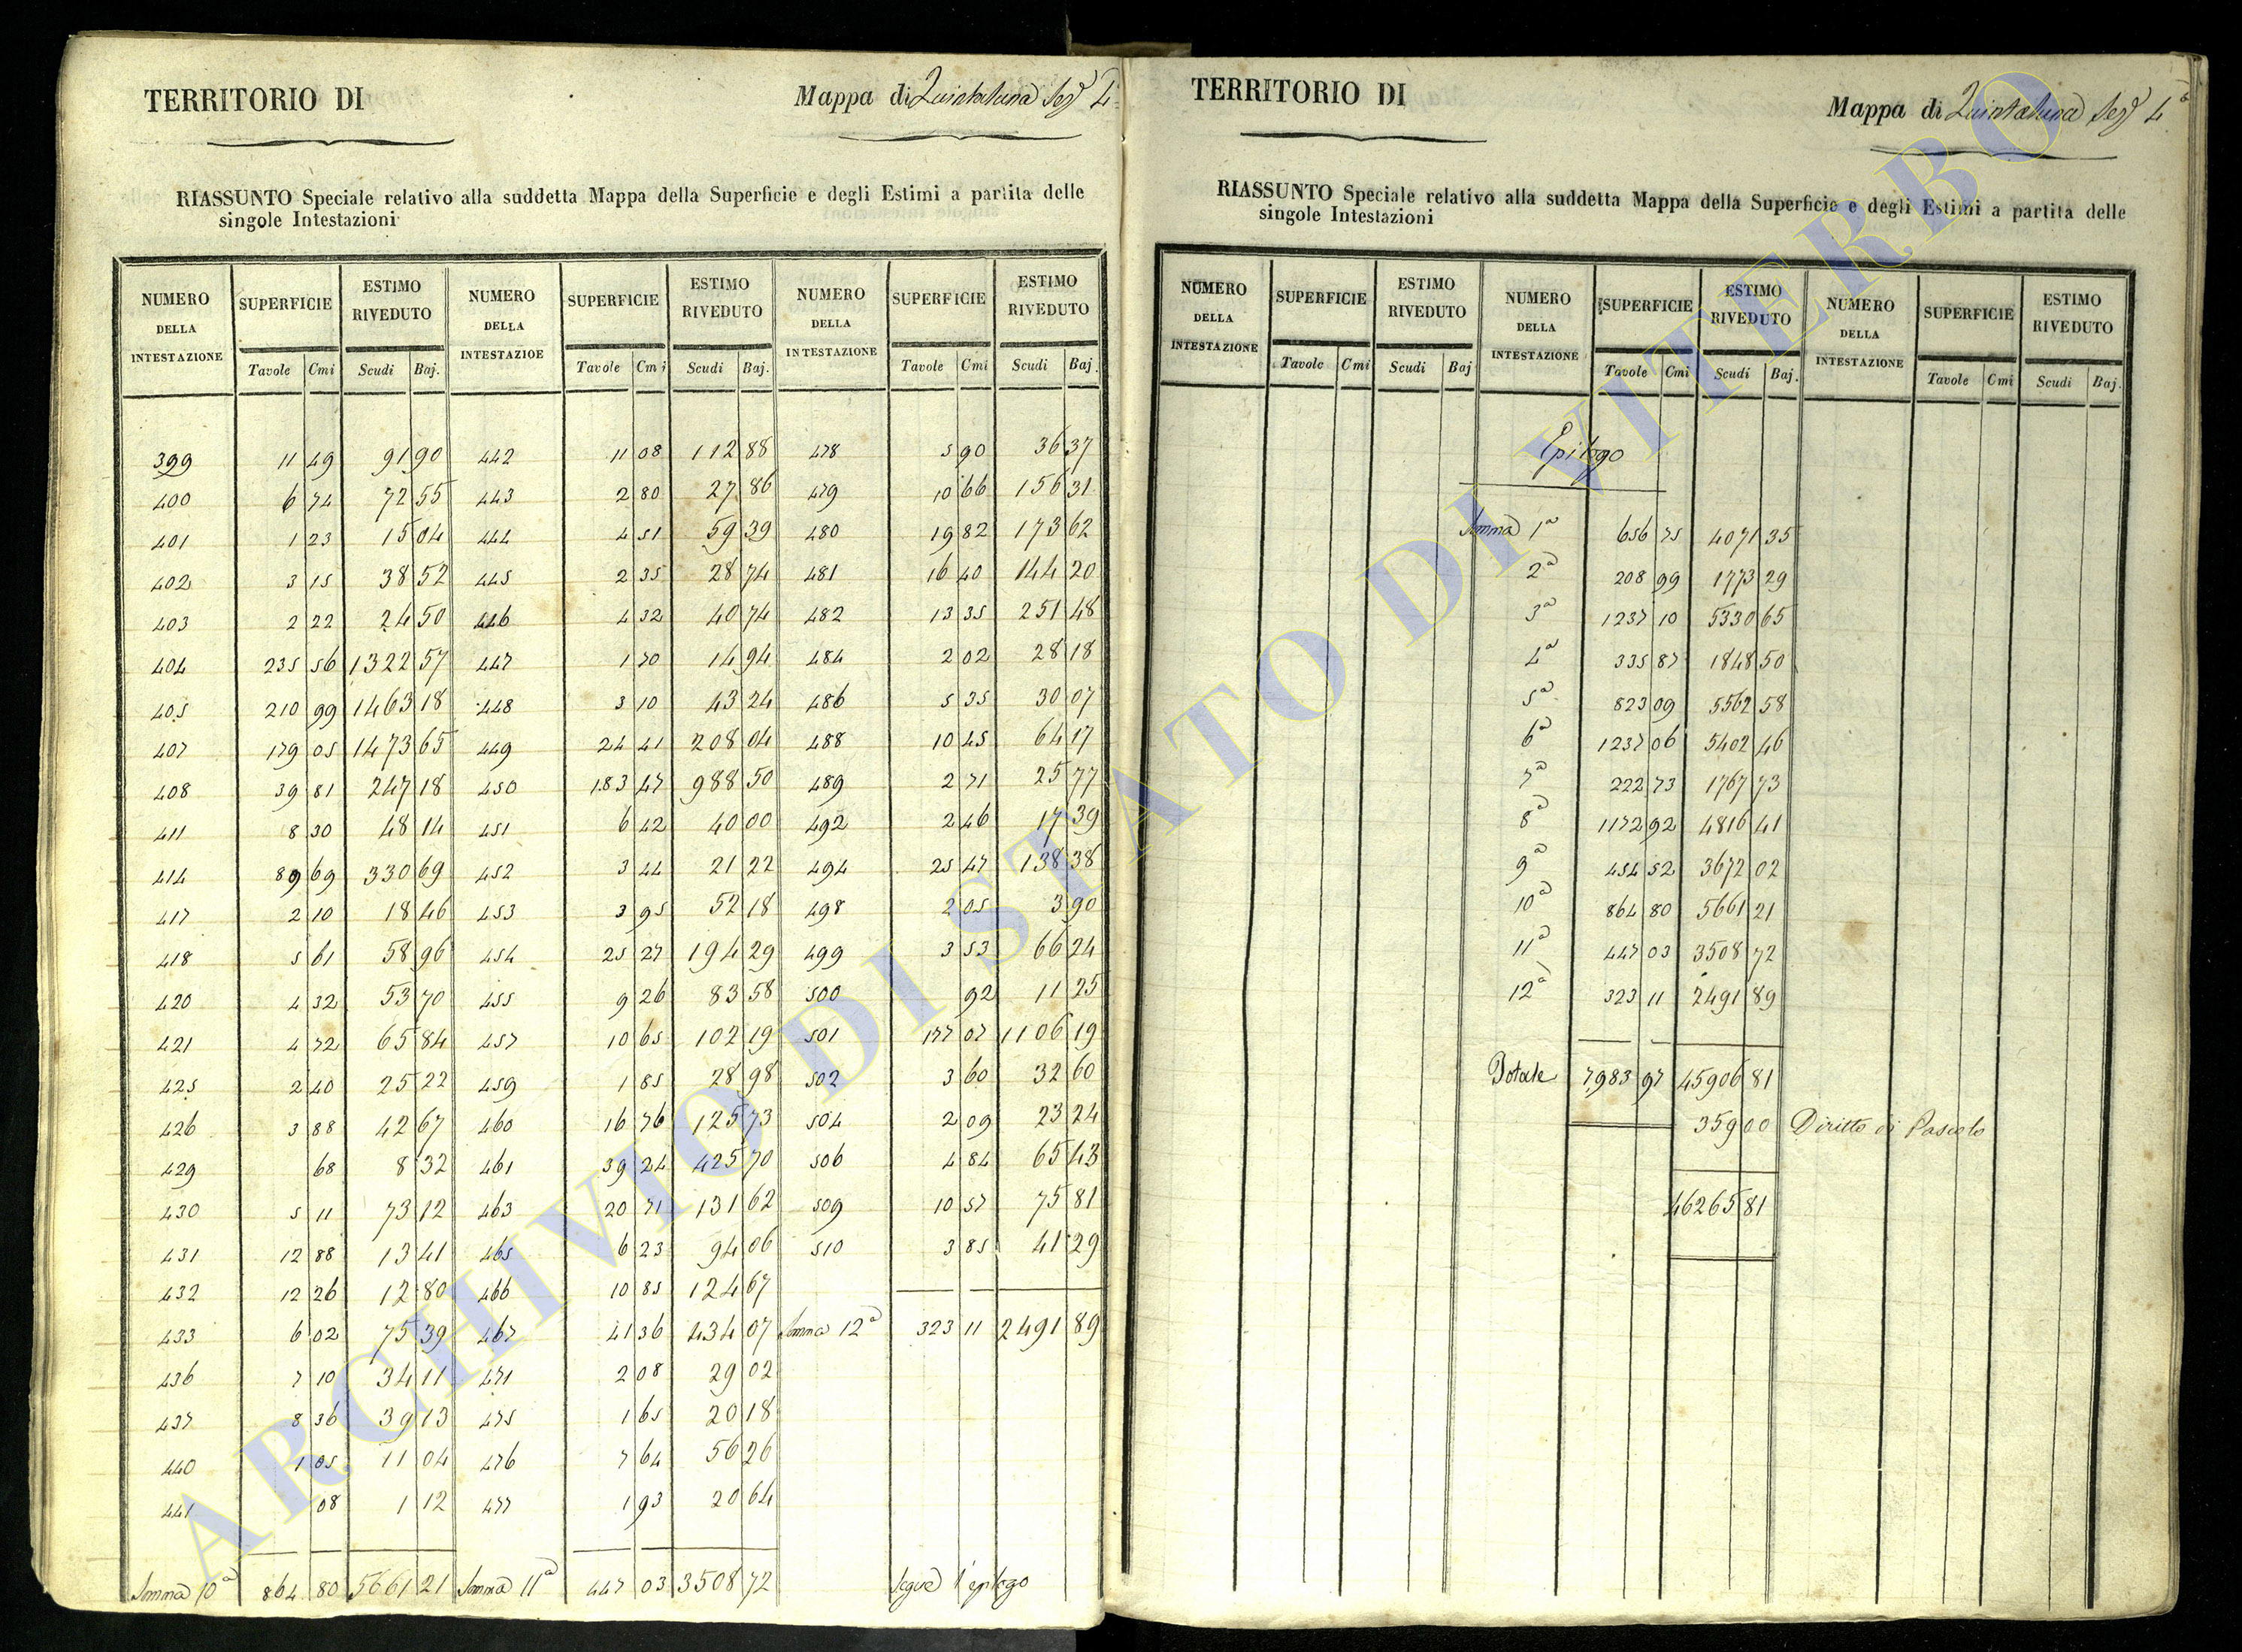 TERRITORIO DI
Mappa di Quintaluna Sez. 4
RIASSUNTO Speciale relativo alla suddetta Mappa della Superficie e degli Estimi a partita delle
singole Intestazioni
NUMERO DELLA INTESTAZIONE SUPERFICIE ESTIMO RIVEDUTO NUMERO DELLA INTESTAZIOE SUPERFICIE ESTIMO RIVEDUTO NUMERO DELLA INTESTAZIONE SUPERFICIE ESTIMO RIVEDUTO
Tavole Cmi Scudi Baj. Tavole Cmi Scudi Baj. Tavole Cmi Scudi Baj.
399 11 49 91 90 442 11 08 112 88 478 5 90 36 37
400 6 74 72 55 443 2 80 27 86 479 10 66 156 31
401 1 23 15 04 444 4 51 59 39 480 19 82 173 62
402 3 15 38 52 445 2 35 28 74 481 16 40 144 20
403 2 22 24 50 446 4 32 40 74 482 13 35 251 48
404 235 56 1322 57 447 1 70 14 94 484 2 02 28 18
405 210 99 1463 18 448 3 10 43 24 486 5 35 30 07
407 179 05 1473 65 449 24 41 208 04 488 10 45 64 17
408 39 81 247 18 450 183 47 988 50 489 2 71 25 77
411 8 30 48 14 451 6 42 40 00 492 2 46 17 39
414 89 69 330 69 452 3 44 21 22 494 25 47 138 38
417 2 10 18 46 453 3 95 52 18 498 2 05 3 90
418 5 61 58 96 454 25 27 194 29 499 3 53 66 24
420 4 32 53 70 455 9 26 83 58 500 92 11 25
421 4 72 65 84 457 10 65 102 19 501 177 07 1106 19
425 2 40 25 22 459 1 85 28 98 502 3 60 32 60
426 3 88 42 67 460 16 76 125 73 504 2 09 23 24
429 68 8 32 461 39 24 425 70 506 4 84 65 43
430 5 11 73 12 463 20 71 131 62 509 10 57 75 81
431 12 88 13 41 465 6 23 94 06 510 3 85 41 29
432 12 26 12 80 466 10 85 124 67
433 6 02 75 39 467 41 36 434 07 Somma 12a 323 11 2491 89
436 7 10 34 11 471 2 08 29 02
437 8 36 39 13 475 1 65 20 18
440 1 05 11 04 476 7 64 56 26
441 08 1 12 477 1 93 20 64
Somma 10a 864 80 5661 21 Somma 11a 447 03 3508 72 Segue l'epilogo
TERRITORIO DI
Mappa di Quintaluna Sez. 4a
RIASSUNTO Speciale relativo alla suddetta Mappa della Superficie e degli Estimi a partita delle
singole Intestazioni
NUMERO DELLA INTESTAZIONE SUPERFICIE ESTIMO RIVEDUTO NUMERO DELLA INTESTAZIONE SUPERFICIE ESTIMO RIVEDUTO NUMERO DELLA INTESTAZIONE SUPERFICIE ESTIMO RIVEDUTO
Tavole Cmi Scudi Baj Tavole Cmi Scudi Baj. Tavole Cmi Scudi Baj.
Epilogo
Somma 1a 656 75 4071 35
2a 208 99 1773 29
3a 1237 10 5330 65
4a 335 87 1848 50
5a 823 09 5562 58
6a 1237 06 5402 46
7a 222 73 1767 73
8a 1172 92 4816 41
9a 454 52 3672 02
10a 864 80 5661 21
11a 447 03 3508 72
12a 323 11 2491 89
Totale 7983 97 45906 81
359 00 Diritto di Pascolo
46265 81
ARCHIVIO DI STATO DI VITERBO